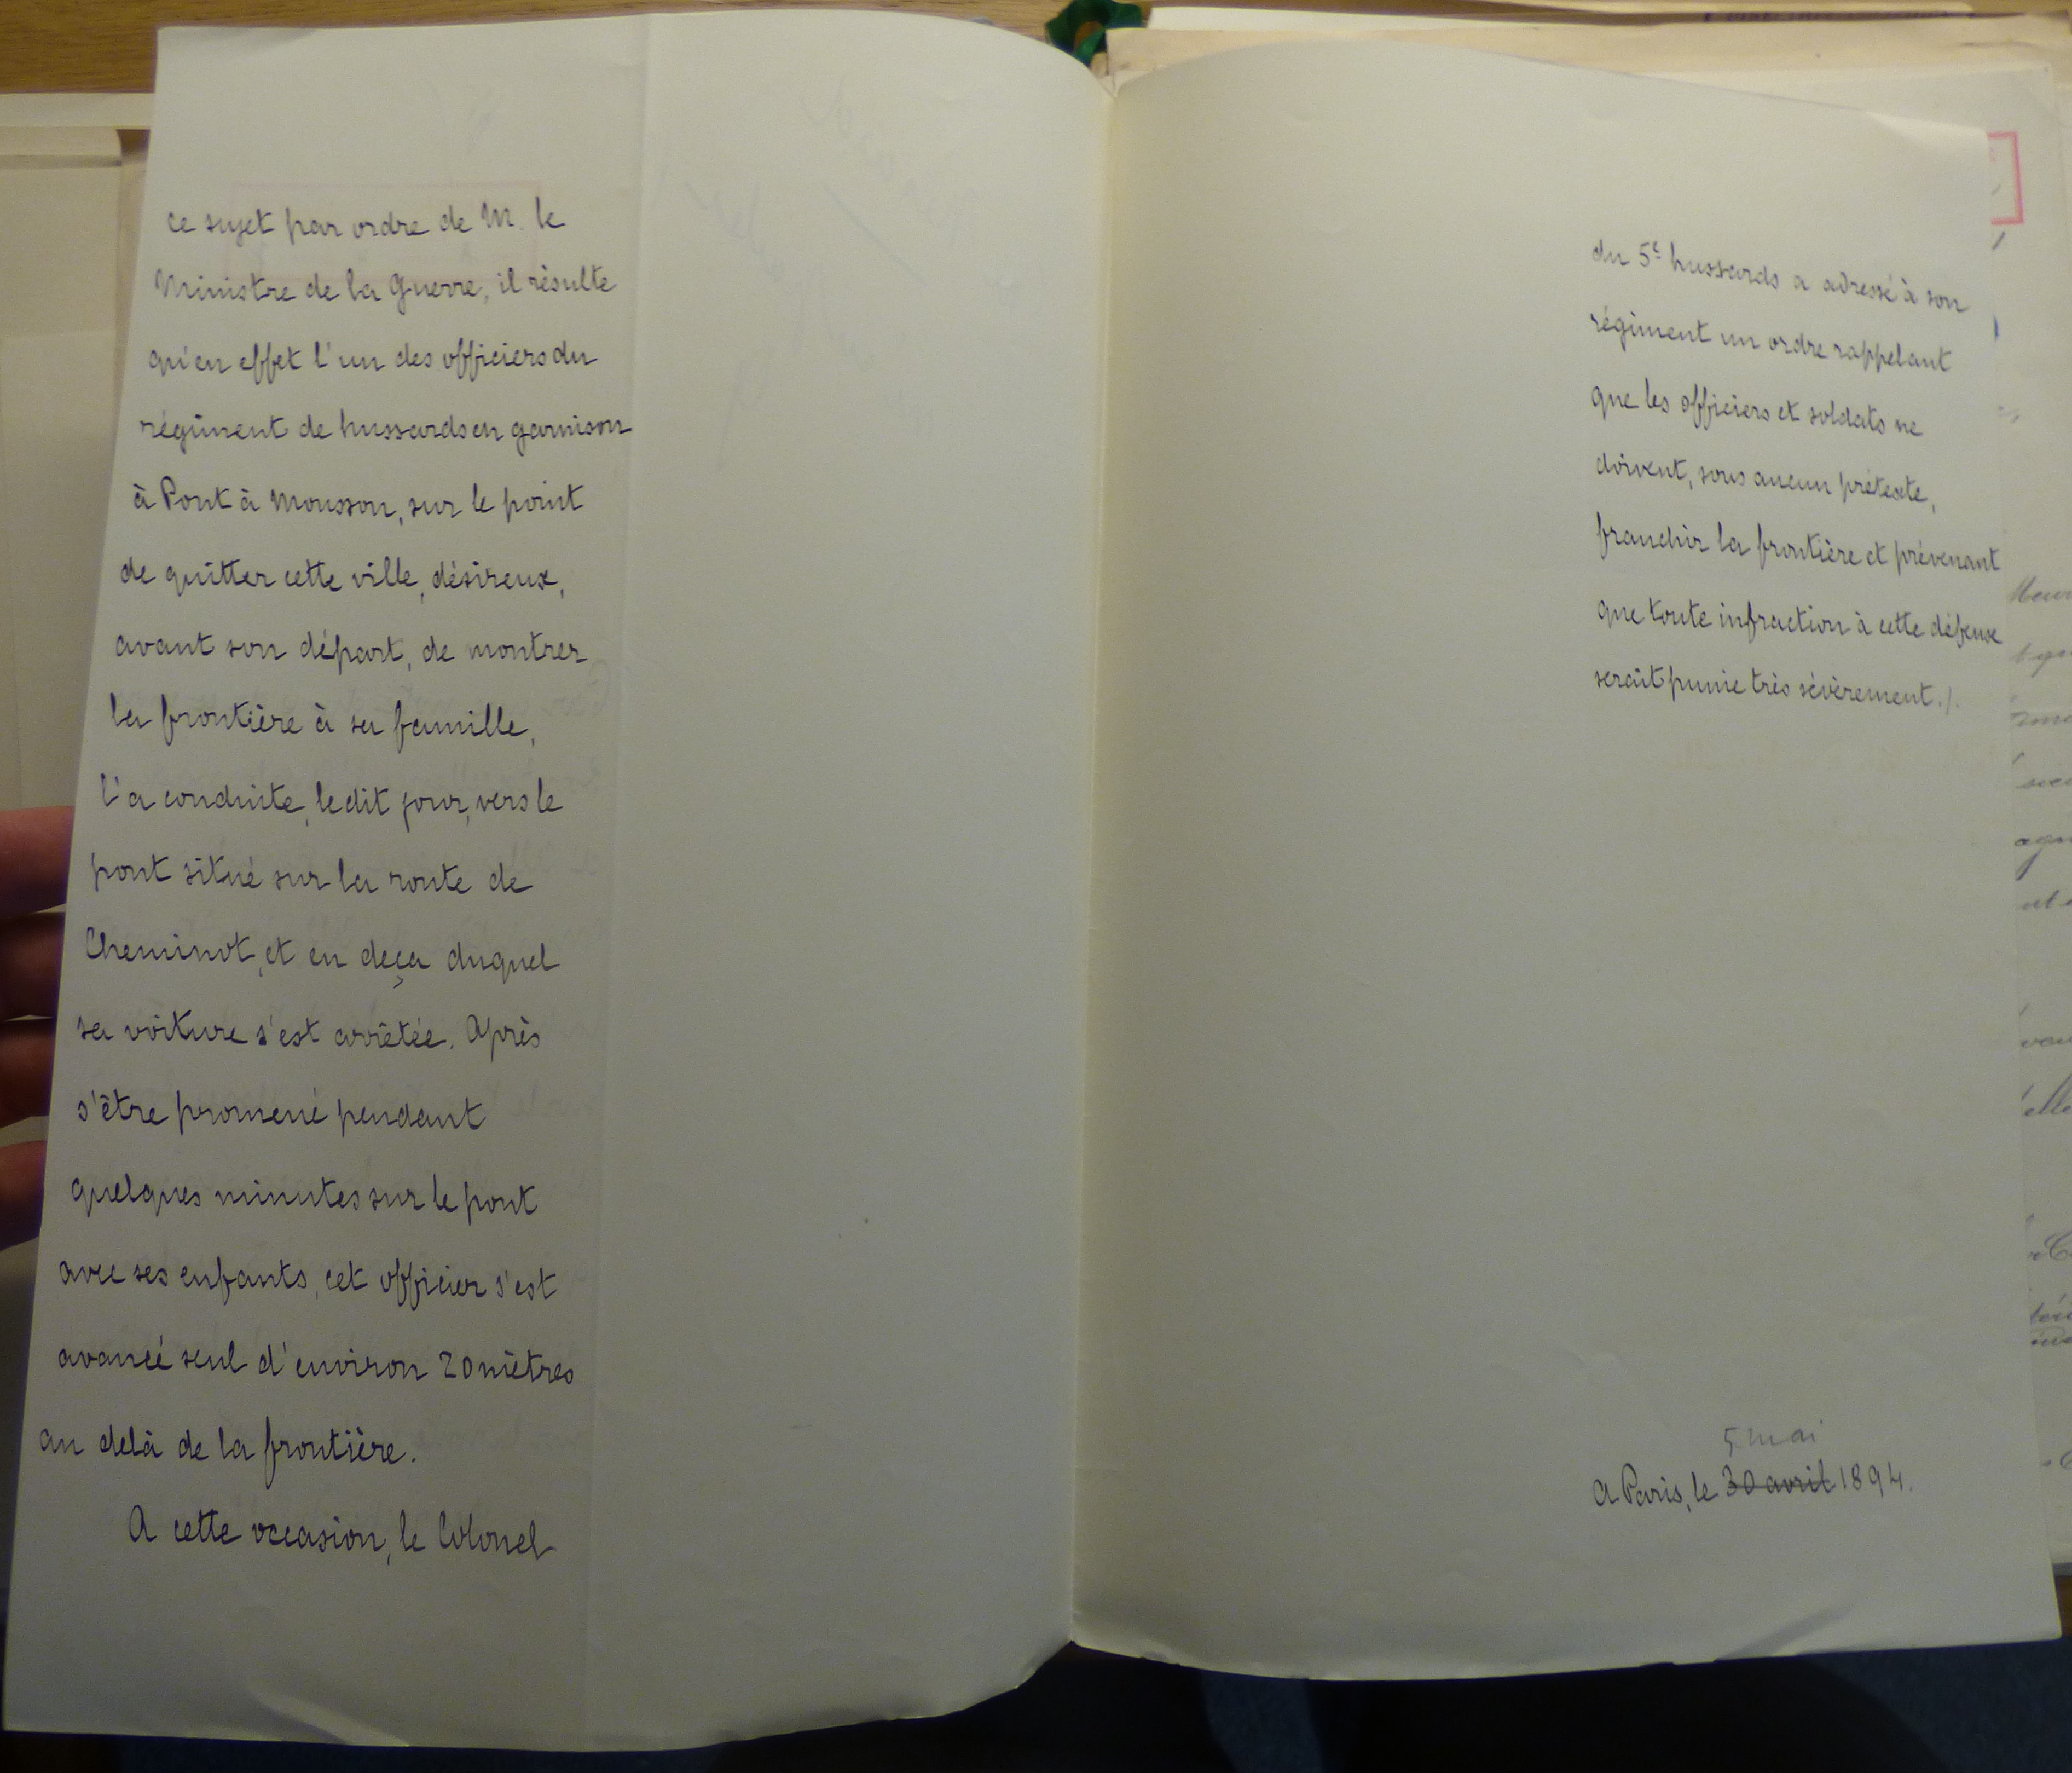 ce sujet par ordre de M. le
Ministre de la Guerre, il résulte
qu'en effet l'un des officiers du
régiment de hussards en garnison
à Pont à Mousson, sur le point
de quitter cette ville, désireux,
avant son départ, de montrer
la frontière à sa famille,
l'a conduite, le dit jour, vers le
pont situé sur la route de
Cheminot, et en deça duquel
sa voiture s'est arrêtée. Après
s'être promené pendant
quelques minutes sur le pont
avec ses enfants, cet officier s'est
avancé seul d'environ 20 mètres
au delà de la frontière.
A cette occasion, le Colonel
du 5e hussards a adressé à son
régiment un ordre rappelant
que les officiers et soldats ne
doivent, sous aucun prétexte,
franchir la frontière et prévenant
que toute infraction à cette défense
serait punie très sévèrement./.
5 mai
A Paris, le 30 avril 1894.